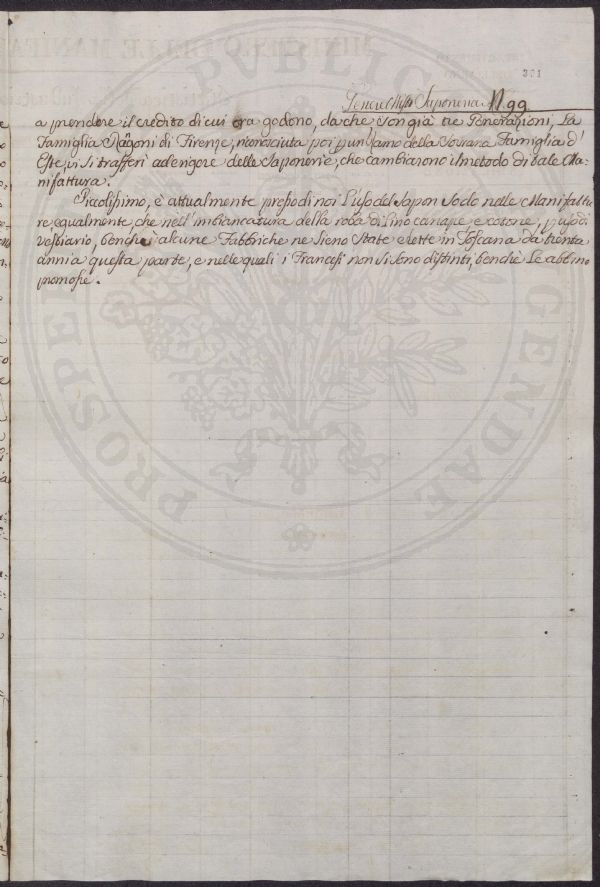 331
Genere Misto Saponeria N. 99
a prendere il credito di cui ora godono, da che son già tre Generazioni, La
Famiglia Rangoni di Firenze, riconosciuta poi p un Ramo della Sovrana Famiglia d'
Este, vi si trasferì ad erigere delle Saponerie, che cambiarono il metodo di tale Ma-
nifattura.
Piccolissimo, è attualmente presso di noi L'uso del Sapon Sodo nelle Manifattu
re, egualmente, che nell'imbiancatura della roba di Lino canape e cotone, p uso di
vestiario, benche alcune Fabbriche ne sieno state erette in Toscana da trenta
anni a questa parte, e nelle quali i Francesi non si sono distinti, benche Le abbino
promosse.
PVBLIC
PROSPE
GENDAE